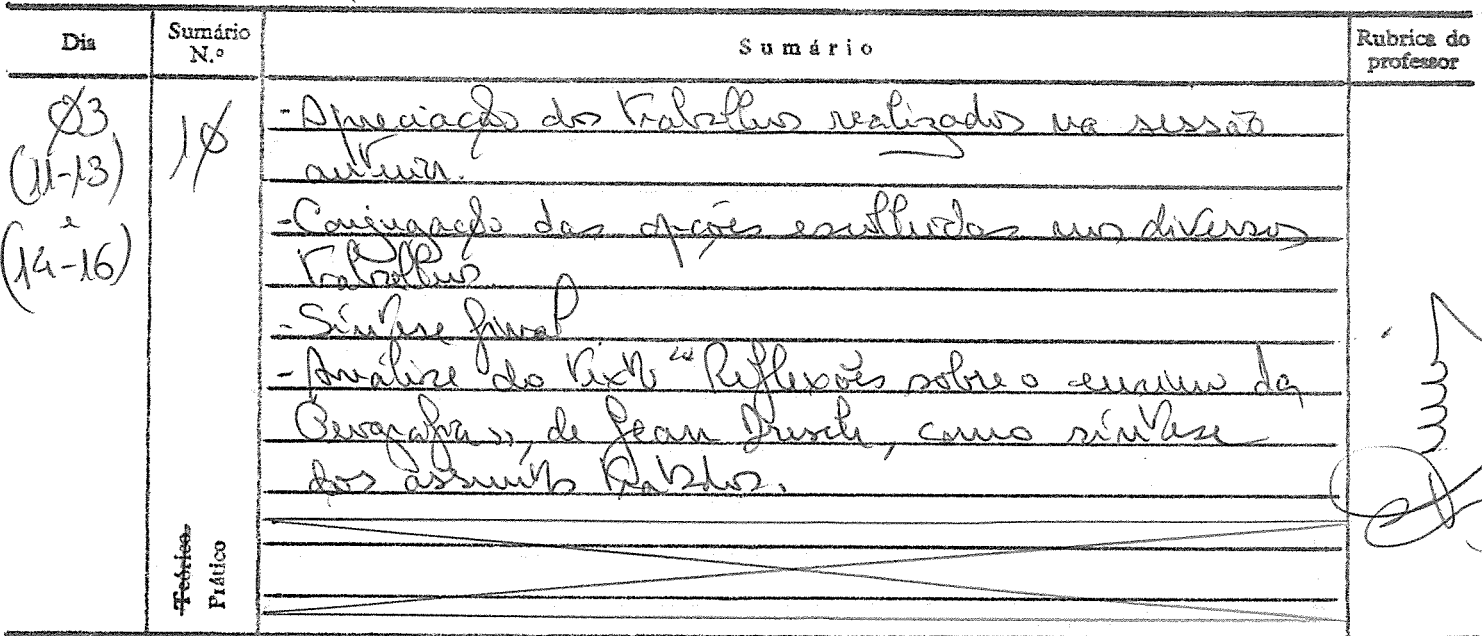 Dia
Sumário N.º
Sumário
Rubrica do professor
Ø3
(11-13)
e
(14-16)
1Ø
- Apreciação dos trabalhos realizados na sessão
anterior.
- Conjugação das opções escolhidas nos diversos
trabalhos.
- Síntese final
- Análise do texto "Reflexões sobre o ensino da
Geografia», de Jean Dresch, como síntese
dos assuntos tratados.
Teórico
Prático